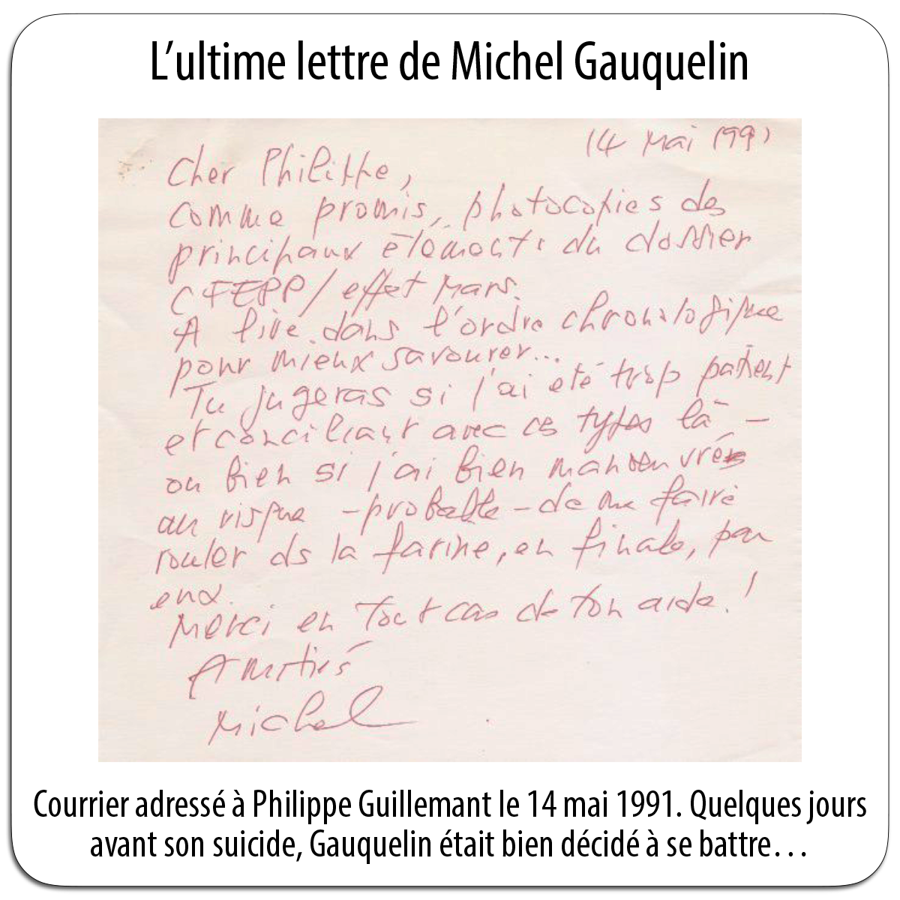 L’ultime lettre de Michel Gauquelin
14 Mai 1991
Cher Philippe,
comme promis, photocopies des
principaux éléments du dossier
CFEPP/effet Mars.
A lire dans l'ordre chronologique
pour mieux savourer...
Tu jugeras si j'ai été trop patient
et conciliant avec ces types là -
ou bien si j'ai bien manoeuvré
au risque - probable - de me faire
rouler ds la farine, en finale, par
eux.
Merci en tout cas de ton aide !
Amitiés
Michel
Courrier adressé à Philippe Guillemant le 14 mai 1991. Quelques jours
avant son suicide, Gauquelin était bien décidé à se battre…